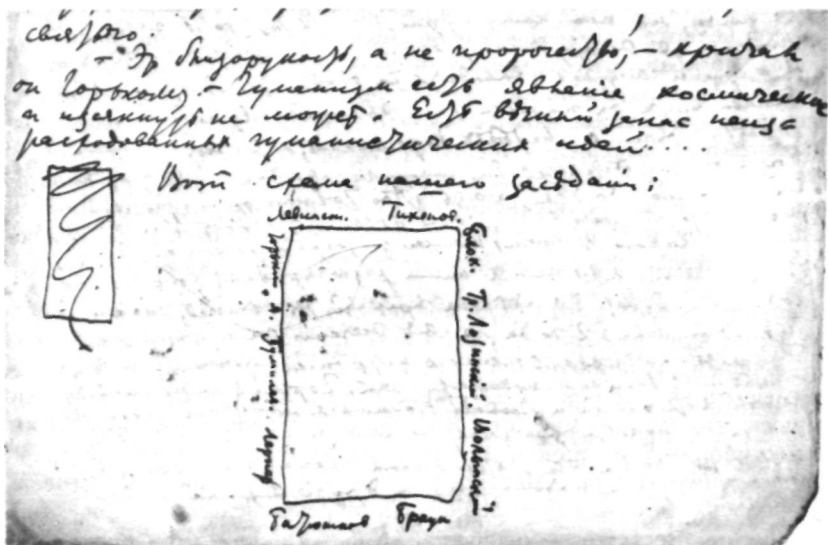 святого.
— Это близорукость, а не пророчество, — кричал
он Горькому. — Гуманизм есть явление космическое
и иссякнуть не может. Есть вѣчный запас неиз-
расходованных гуманистических идей....
Вот схема нашего засѣдания:
Левинсон. Тихонов.
Горький. Я. Гумилев. Лернер
Блок. Гр. Лозинский. Волынский
Батюшков Браун